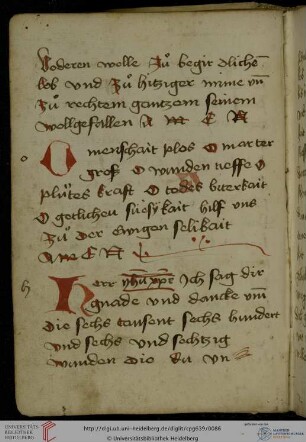 voderen welle Zu begir dliche
lob vnd Zu hitziger mīne vn̄
Zu rechtem gantzem seinem
wollgefallen A M E N
O menschait plos O marter
groß O wunden tieffe O
plutes krafft O todes biterkait
O gotlichen suesykait hilf vns
Zu der ewigen selikait
A M E N
Herr yhū xpē Ich sag dir
gnade vnd dancke vm̄
die sechs tausent sechs hundert
vnd sechs vnd sechtzig
wunden die du vn
http://digi.ub.uni-heidelberg.de/diglit/cpg639/0086
© Universitätsbibliothek Heidelberg
UNIVERSITÄTS-
BIBLIOTHEK
HEIDELBERG